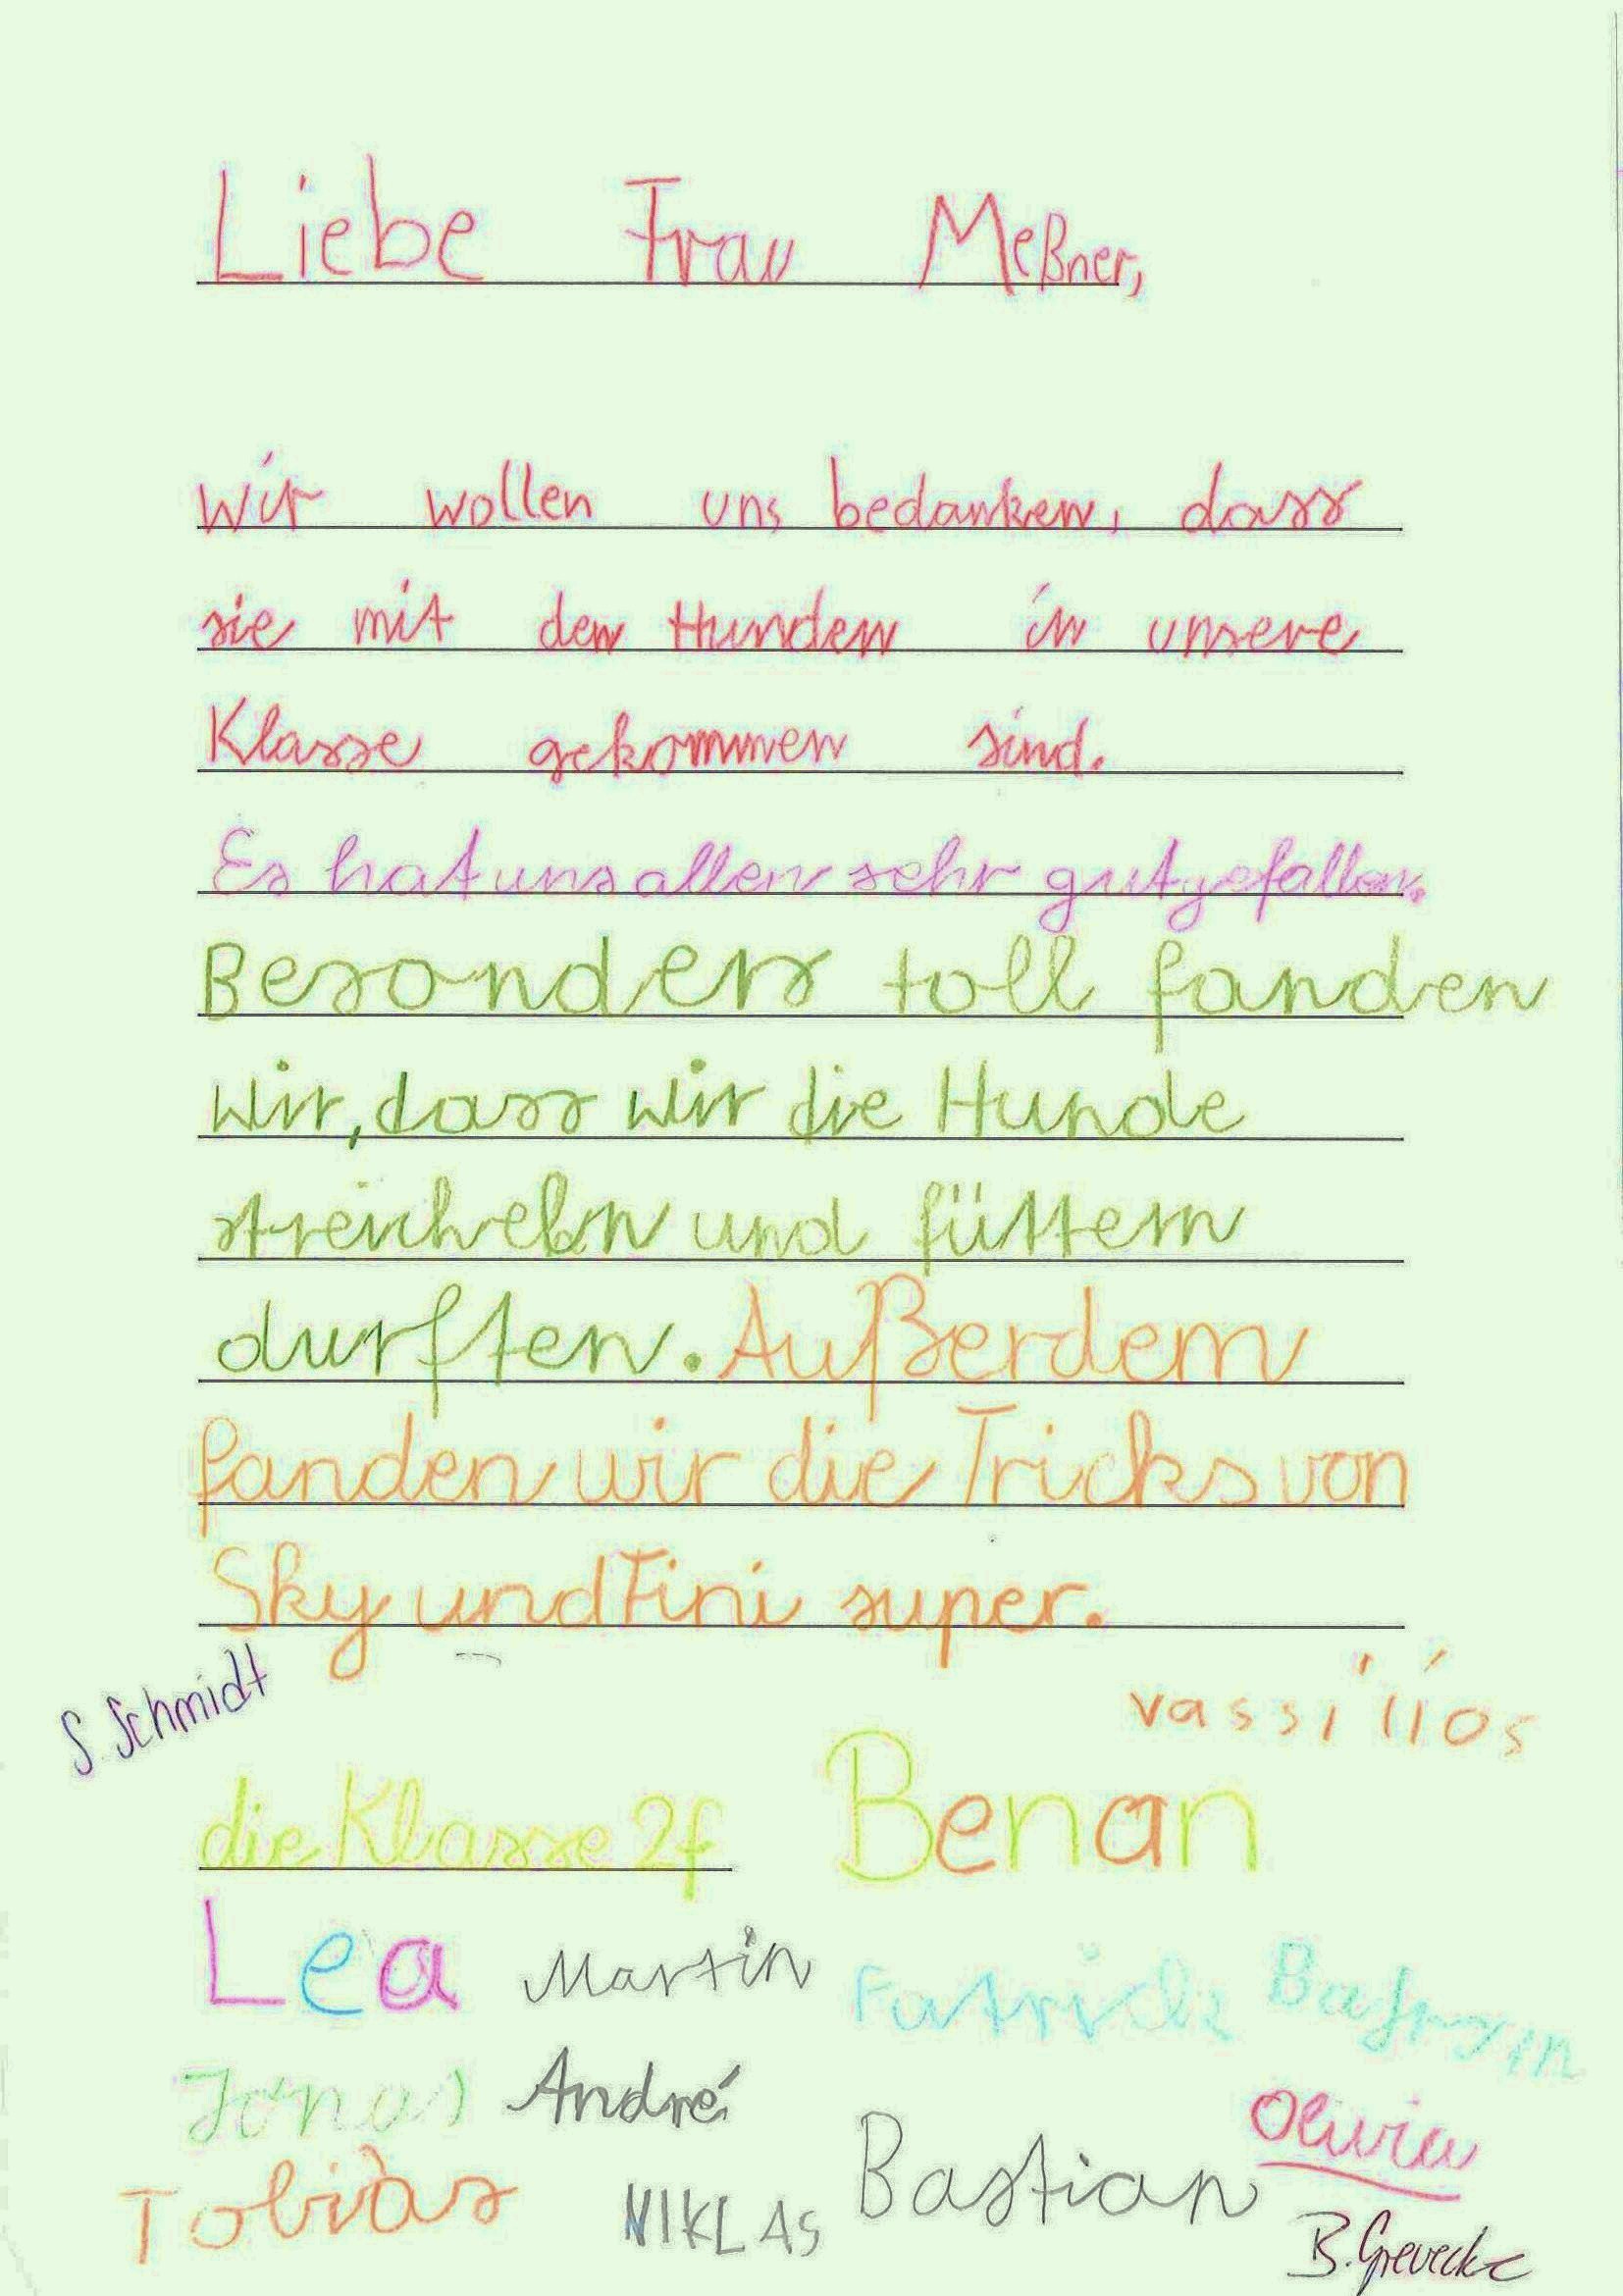 Liebe Frau Meßner,
wir wollen uns bedanken, dass
sie mit den Hunden in unsere
Klasse gekommen sind.
Es hat uns allen sehr gut gefallen.
Besonders toll fanden
wir, dass wir die Hunde
streicheln und füttern
durften. Außerdem
fanden wir die Tricks von
Sky und Fini super.
S. Schmidt
vassilios
die Klasse 2f Benan
Lea Martin
Jonas André
Olivia
Tobias NIKLAS Bastian